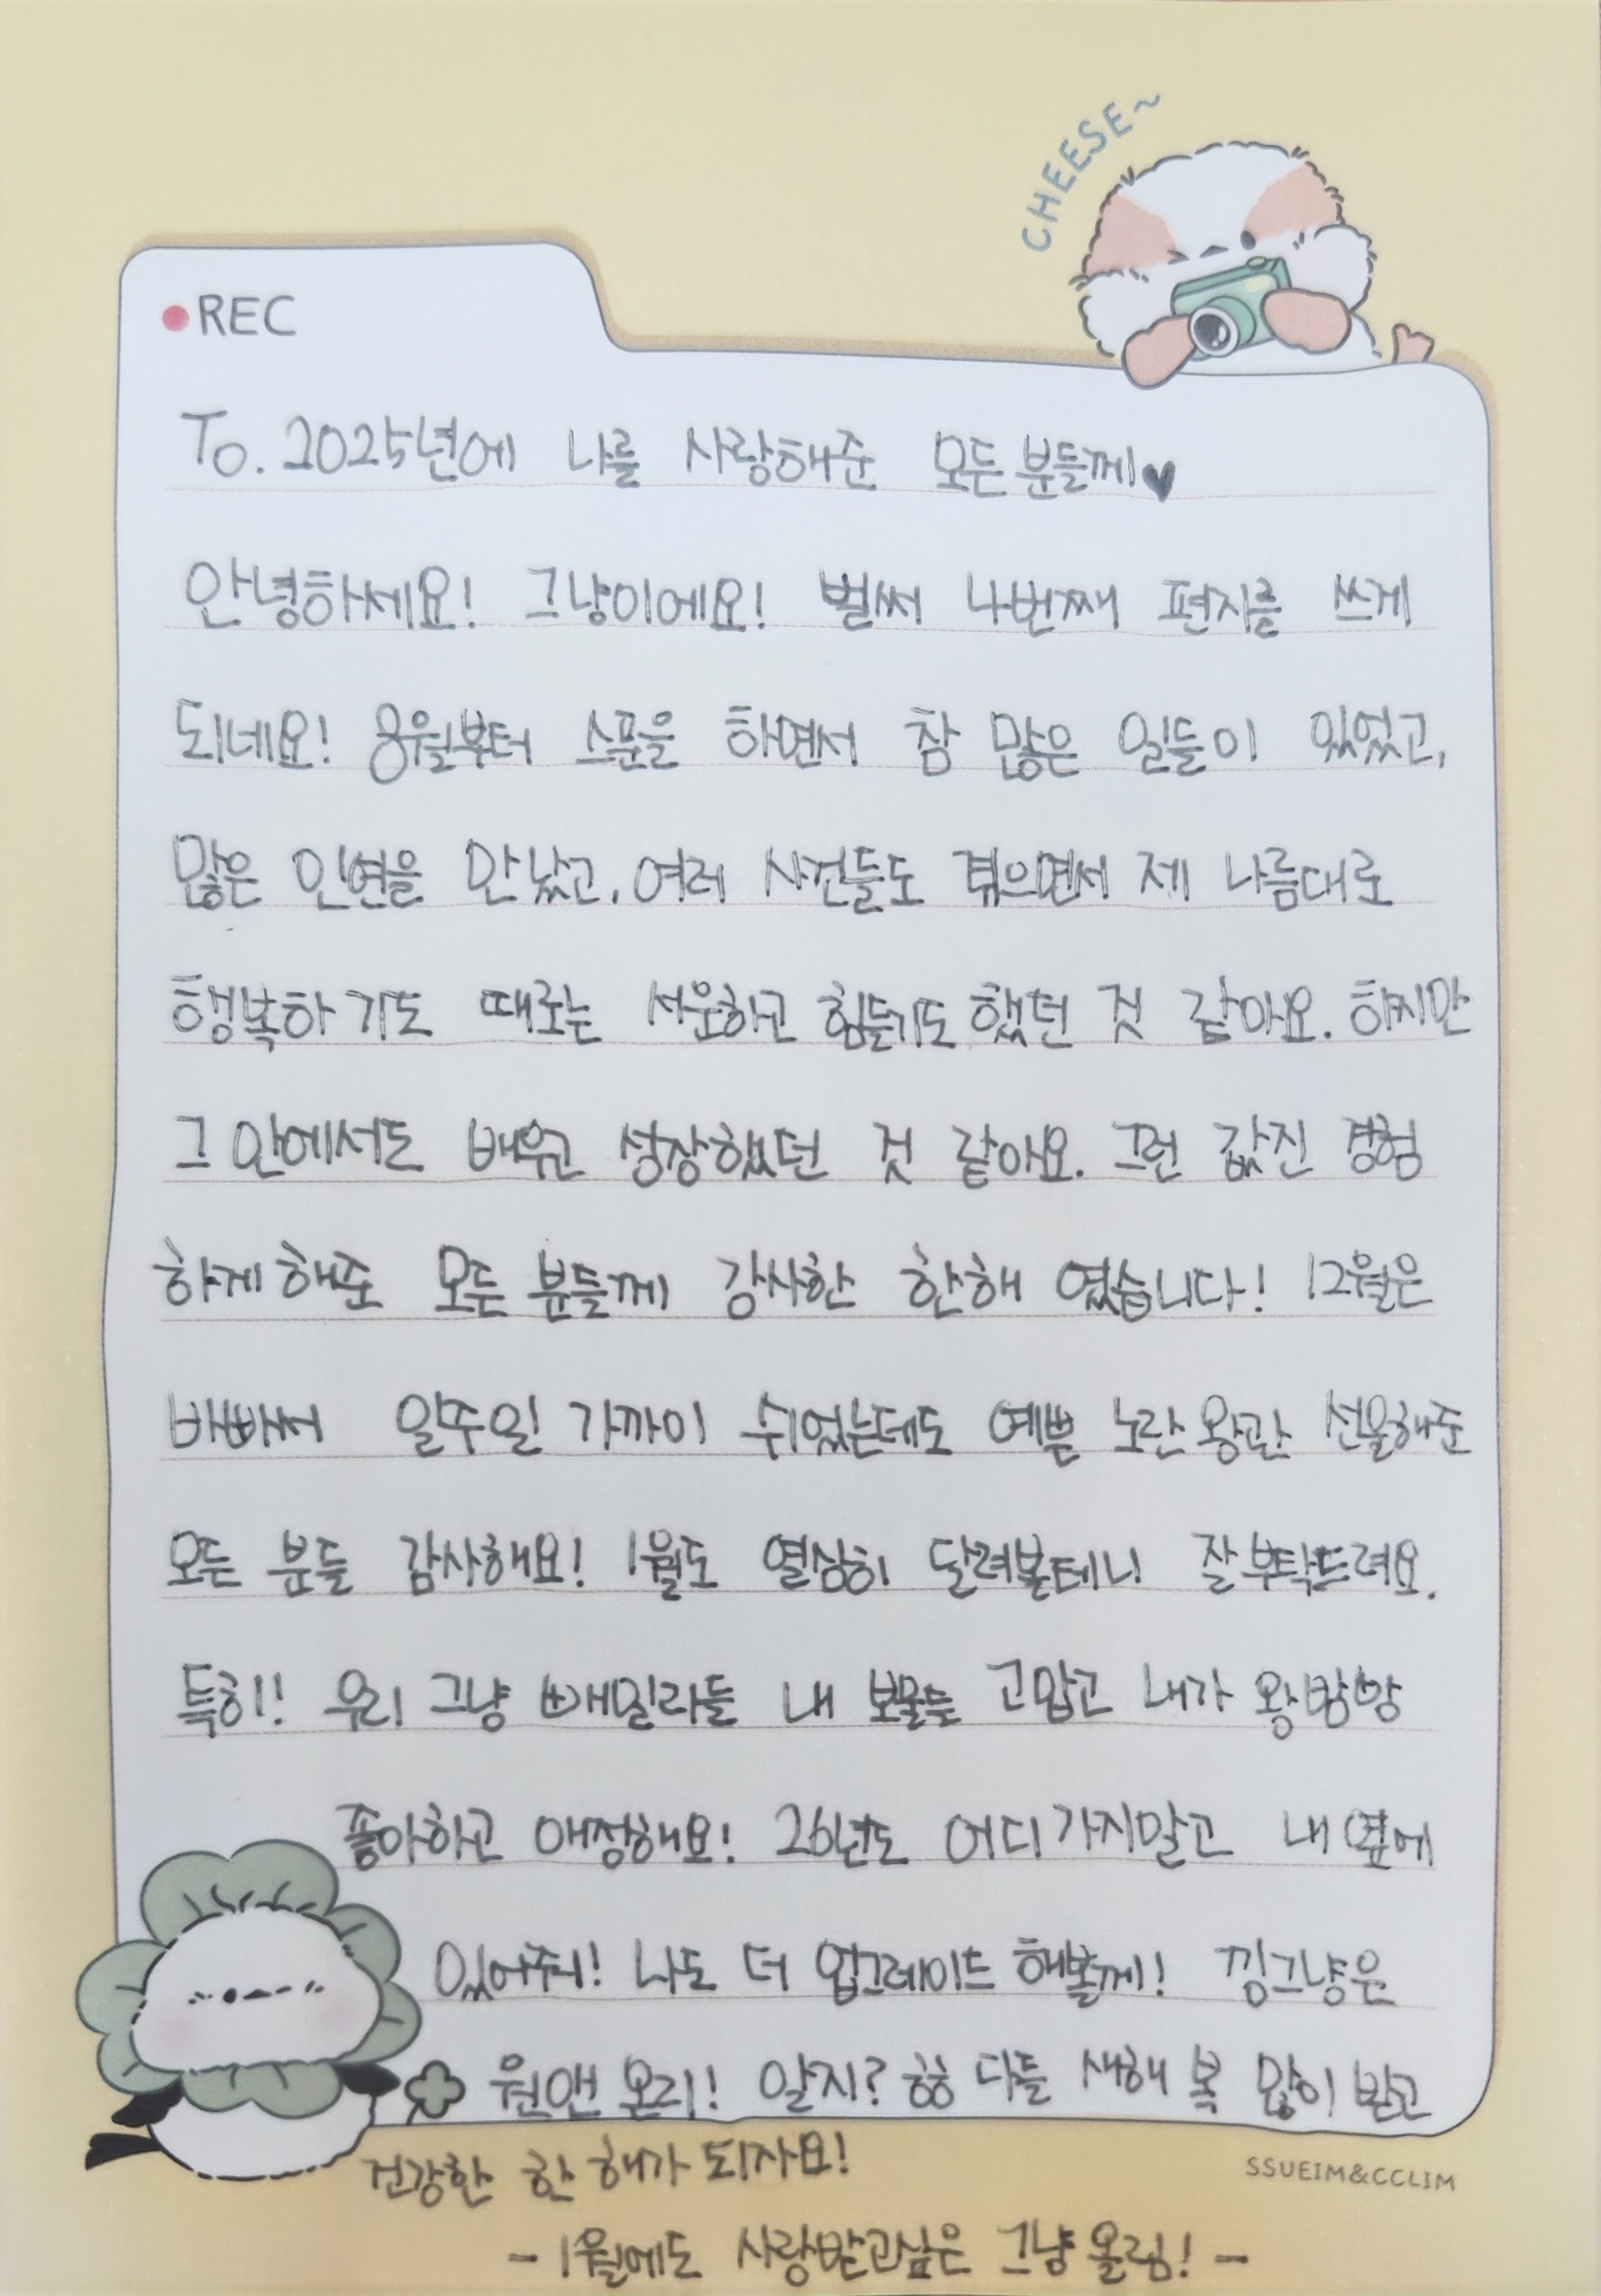 CHEESE~
REC
To. 2025년에 나를 사랑해준 모든분들께♥
안녕하세요! 그냥이에요! 벌써 4번째 편지를 쓰게
되네요! 8월부터 스푼을 하면서 참 많은 일들이 있었고,
많은 인연을 만났고, 여러 사건들도 겪으면서 제 나름대로
행복하기도 때로는 서운하고 힘들기도 했던 것 같아요. 하지만
그 안에서도 배우고 성장했던 것 같아요. 그런 값진 경험
하게 해준 모든 분들께 감사한 한해 였습니다! 12월은
바빠서 일주일 가까이 쉬었는데도 예쁜 노란 왕관 선물해준
모든 분들 감사해요! 1월도 열심히 달려볼테니 잘부탁드려요.
특히!! 우리 그냥 빼밀리들 내 보물들 고맙고 내가 왕방방
좋아하고 애정해요! 26년도 어디가지말고 내 옆에
있어줘! 나도 더 업그레이드 해볼께! 낑그냥은
원앤 온리! 알지? 다들 새해 복 많이 받고
건강한 한 해가 되자요!
SSUEIM&CCLIM
- 1월에도 사랑받고싶은 그냥 올림! -